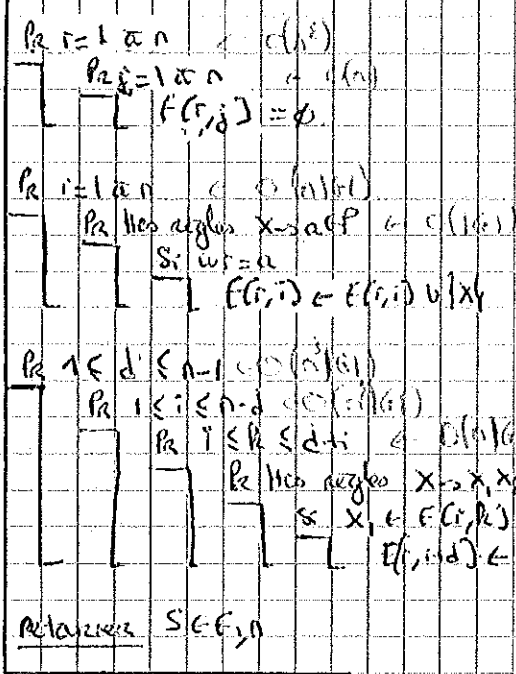 Pr i=1 à n ← O(n²)
Pr j=1 à n ← O(n)
E(i,j) = ∅
Pr i=1 à n ← O(n|G|)
Pr ttes règles X→a∈P ← O(|G|)
Si wi=a
E(i,i) ← E(i,i) ∪ {X}
Pr 1 ≤ d ≤ n-1 ← O(n³|G|)
Pr 1 ≤ i ≤ n-d ← O(n²|G|)
Pr i ≤ k ≤ d+i ← O(n|G
Pr ttes règles X→X₁X
Si X₁ ∈ E(i,k)
E(i,i+d) ←
Retourner S∈E₁,n